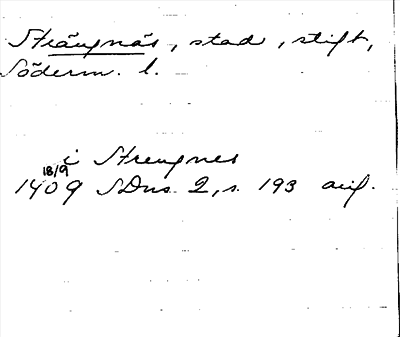 Strängnäs, stad, stift,
Söderm. l.
i Strengnes
18/9
1409 SDns 2, s. 193 avs.